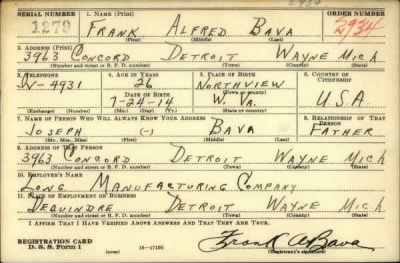 SERIAL NUMBER 1. NAME (Print) ORDER NUMBER
1279 FRANK ALFRED BAVA
(First) (Middle) (Last)
2. ADDRESS (Print)
3963 CONCORD DETROIT WAYNE MICH
(Number and street or R. F. D. number) (Town) (County) (State)
3. TELEPHONE 4. AGE IN YEARS 5. PLACE OF BIRTH 6. COUNTRY OF CITIZENSHIP
4931 26 NORTHVIEW
DATE OF BIRTH (Town or county)
7-24-14 W. VA. U.S.A.
(Exchange) (Number) (Mo.) (Day) (Yr.) (State or country)
7. NAME OF PERSON WHO WILL ALWAYS KNOW YOUR ADDRESS 8. RELATIONSHIP OF THAT PERSON
JOSEPH (-) BAVA FATHER
(Mr., Mrs., Miss) (First) (Middle) (Last)
9. ADDRESS OF THAT PERSON
3963 CONCORD DETROIT WAYNE MICH
(Number and street or R. F. D. number) (Town) (County) (State)
10. EMPLOYER'S NAME
LONG MANUFACTURING COMPANY
11. PLACE OF EMPLOYMENT OR BUSINESS
DEQUINDRE DETROIT WAYNE MICH
(Number and street or R. F. D. number) (Town) (County) (State)
I AFFIRM THAT I HAVE VERIFIED ABOVE ANSWERS AND THAT THEY ARE TRUE.
REGISTRATION CARD
D. S. S. Form 1 (over) 16-17105 Frank A Bava
(Registrant's signature)